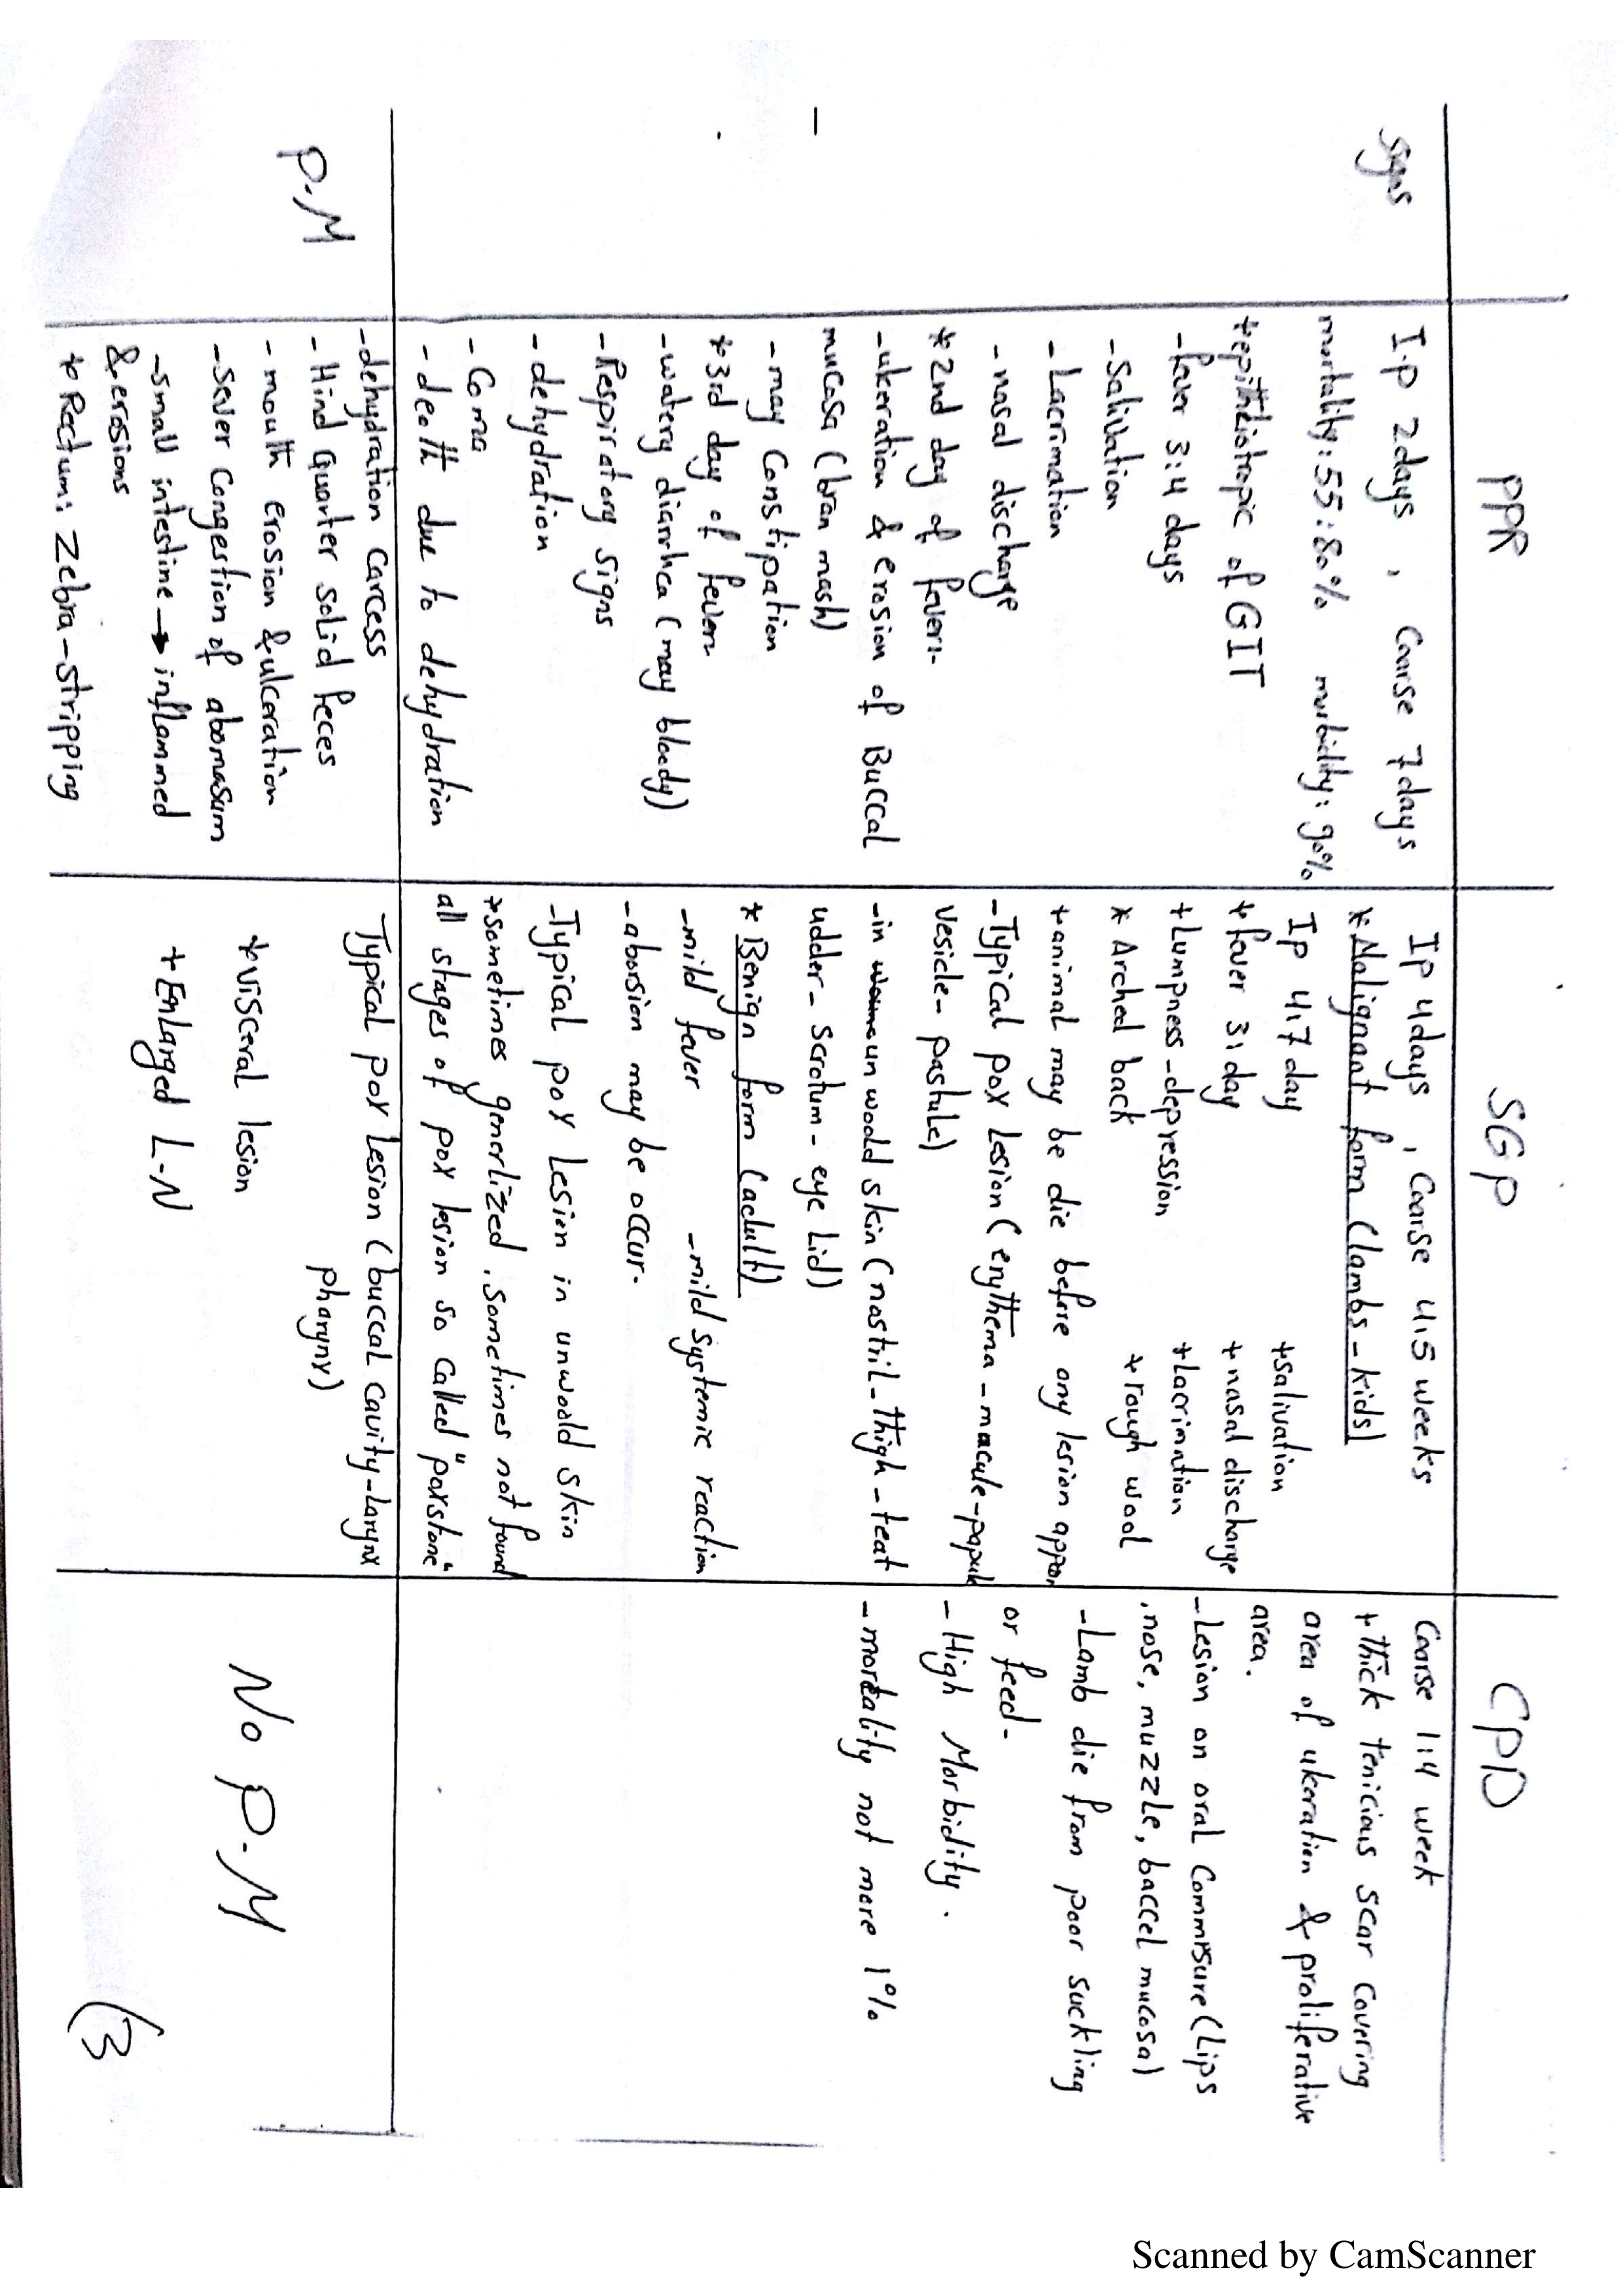 PPR
SGP
CPD
signs
I.P 2days , Coarse 7days
mortality: 55:80% morbidity: 90%
*epitheliotropic of GIT
-fever 3:4 days
-Salivation
-Lacrimation
-nasal discharge
*2nd day of fever:-
-ulceration & erosion of Buccal
mucosa (bran mash)
-may Constipation
*3rd day of fever:-
-watery diarrhea (may bloody)
-Respiratory signs
-dehydration
-Coma
-death due to dehydration
Ip 4days , Coarse 4:5 weeks
*Malignant form (lambs-kids)
Ip 4:7 day
+fever 3:day
+Lumpness-depression
* Arched back
+salivation
+nasal discharge
+lacrimation
+rough wool
+animal may be die before any lesion appear
-Typical pox lesion (erythema-macule-papule
vesicle-pastule)
-in un woold skin (nostril-thigh-teat
udder-scrotum-eye Lid)
* Benign form (adult)
-mild fever -mild systemic reaction
-aborsion may be occur.
-Typical pox lesion in unwoold skin
*sometimes generlized. sometimes not found
all stages of pox lesion so called "poxstone"
Coarse 1:4 week
+thick tenicious scar covering
area of ulceration & proliferative
area.
-Lesion on oral Commisure (Lips
,nose, muzzle, baccel mucosa)
-Lamb die from poor suckling
or feed-
-High Morbidity.
-mortality not more 1%
P.M
-dehydration carcess
-Hind quarter solid feces
-mouth erosion & ulceration
-sever congestion of abomasum
-small intestine → inflammed
& erosions
*Rectum: Zebra-stripping
Typical pox lesion (buccal cavity-larynx
pharynx)
*visceral lesion
+Enlarged L-N
No P.M
(3
Scanned by CamScanner